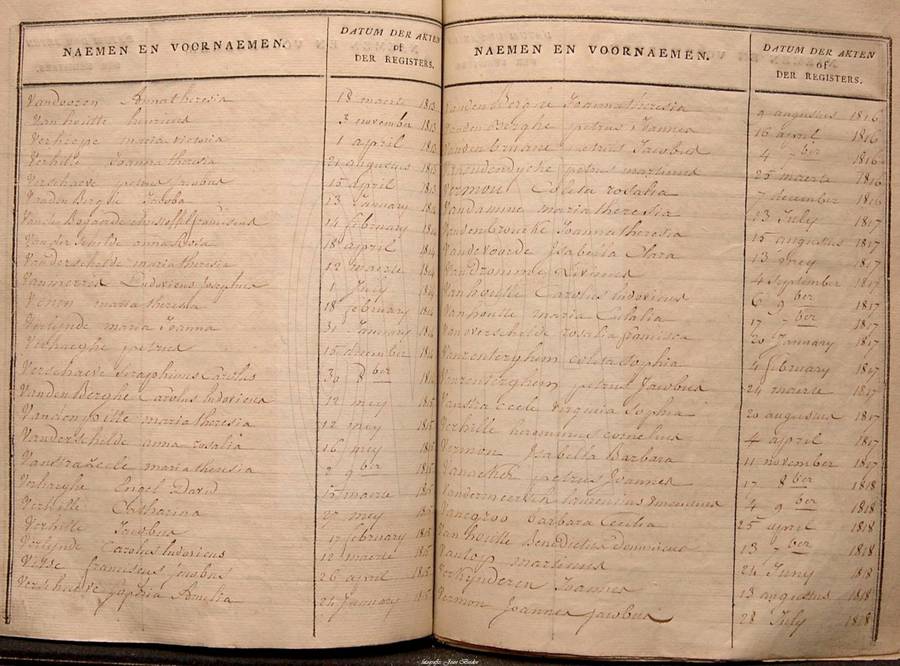 NAEMEN EN VOORNAEMEN.
DATUM DER AKTEN
of
DER REGISTERS.
Vandooren Anna theresia 18 maerte 1813
Van houtte henricus 3 november 1813
Verhegge maria victoria 1 april 1813
Verhille Joanna theresia 21 augustus 1813
Verschaeve petrus jacobus 15 april 1813
Vanden Berghe Jacoba 13 January 1814
franciscus 14 february 1814
Vander Schelde anna Rosa 18 april 1814
Vanderschelde maria theresia 12 maerte 1814
Ludovicus Josephus 1 July 1814
maria theresia 18 february 1814
Verlynde maria Joanna 31 January 1814
Verhaeghe petrus 15 december 1814
Verschaeve Seraphinus Carolus 30 8ber 1814
Vanden Berghe Carolus ludovicus 12 mey 1815
maria theresia 12 mey 1815
Vanderschelde anna rosalia 16 mey 1815
Vanstraceele maria theresia 2 9ber 1815
Verhaeghe Engel David 15 maerte 1815
Verhille Catharina 27 mey 1815
Verhille Jacobus 17 february 1815
Verlynde Carolus ludovicus 12 maerte 1815
franciscus jacobus 26 april 1815
Verschaeve Sophia Amelia 24 January 1815
NAEMEN EN VOORNAEMEN.
DATUM DER AKTEN
of
DER REGISTERS.
Vanden Berghe Joanna theresia 9 augustus 1816
Vanden Berghe petrus Joannes 16 april 1816
petrus Jacobus 4 7ber 1816
petrus martinus 25 maerte 1816
Vermon Coleta rosalia 7 december 1816
Vandamme maria theresia 23 July 1817
Vandenbrouke Joanna theresia 15 augustus 1817
Vandevoorde Isabella Clara 13 mey 1817
Vandromme Livinus 4 September 1817
Carolus ludovicus 6 9ber 1817
Vanhoutte maria Eulalia 17 7ber 1817
Vanoverschelde rosalia francisca 20 January 1817
Vanzenterghem coleta Sophia 4 february 1817
Vanzenterghem petrus Jacobus 24 maerte 1817
Vanstraceele virginia Sophia 20 augustus 1817
Verhille cornelius 4 april 1817
Vermon Isabella Barbara 11 november 1817
Vanacker petrus Joannes 17 8ber 1818
laurentius 4 9ber 1818
Vanegroo barbara Cecilia 25 april 1818
Vanhoutte Benedictus dominicus 13 7ber 1818
martinus 24 Juny 1818
Verkynderen Joannes 13 augustus 1818
Vermon Joannes Jacobus 28 July 1818